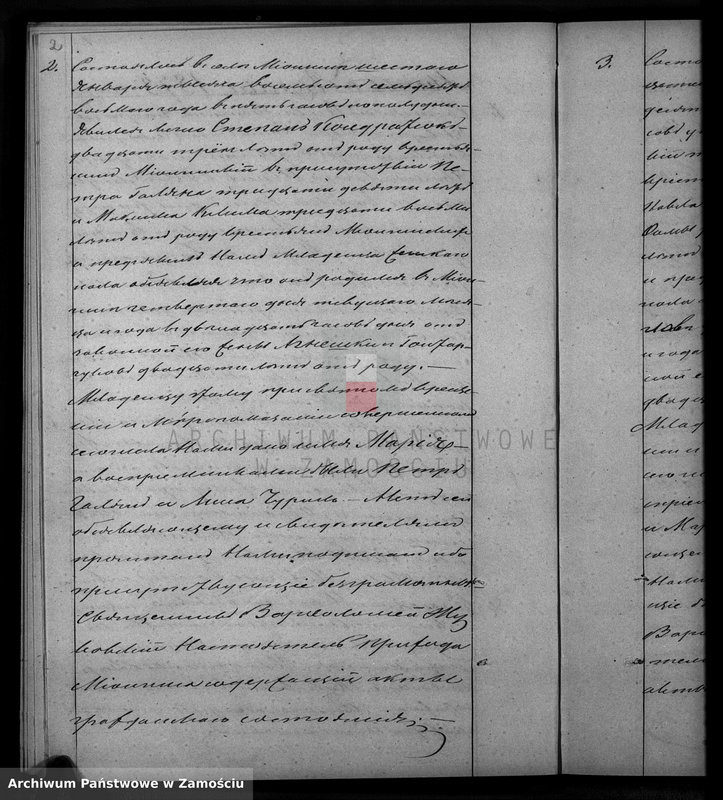 2
2. Состоялось въ селѣ Міончинѣ шестаго
Января тысяча восемьсотъ семьдесятъ
восьмаго года въ пять часовъ по полудни.
Явился лично Степанъ Кондратюкъ
двадцати трёхъ лѣтъ отъ роду крестья-
нинъ Міончинскій въ присутствіи Пе-
тра Галяна тридцати девяти лѣтъ
и Максима тридцати восьми
лѣтъ отъ роду крестьянъ Міончинскихъ
и предъявилъ Намъ Младенца женскаго
пола объявляя что онъ родился въ Міон-
чинѣ четвертаго дня текущаго мѣся-
ца и года въ двѣнадцать часовъ дня отъ
законной его жены Агнешки
двадцати лѣтъ отъ роду. —
Младенцу этому при святомъ Креще-
ніи и Мѵропомазаніи совершенномъ
сего числа Нами дано имя Марія —
а воспріемниками были Петръ
Галянъ и Анна Чуриль. — Актъ сей
объявляющему и свидѣтелямъ
прочитанъ Нами подписанъ ибо
присутствующіе безграмотны.
Священникъ Варѳоломей
Настоятель Прихода
Міончинъ содержащій акты
гражданскаго состоянія. —
3.
ARCHIWUM PAŃSTWOWE
W ZAMOŚCIU
Archiwum Państwowe w Zamościu